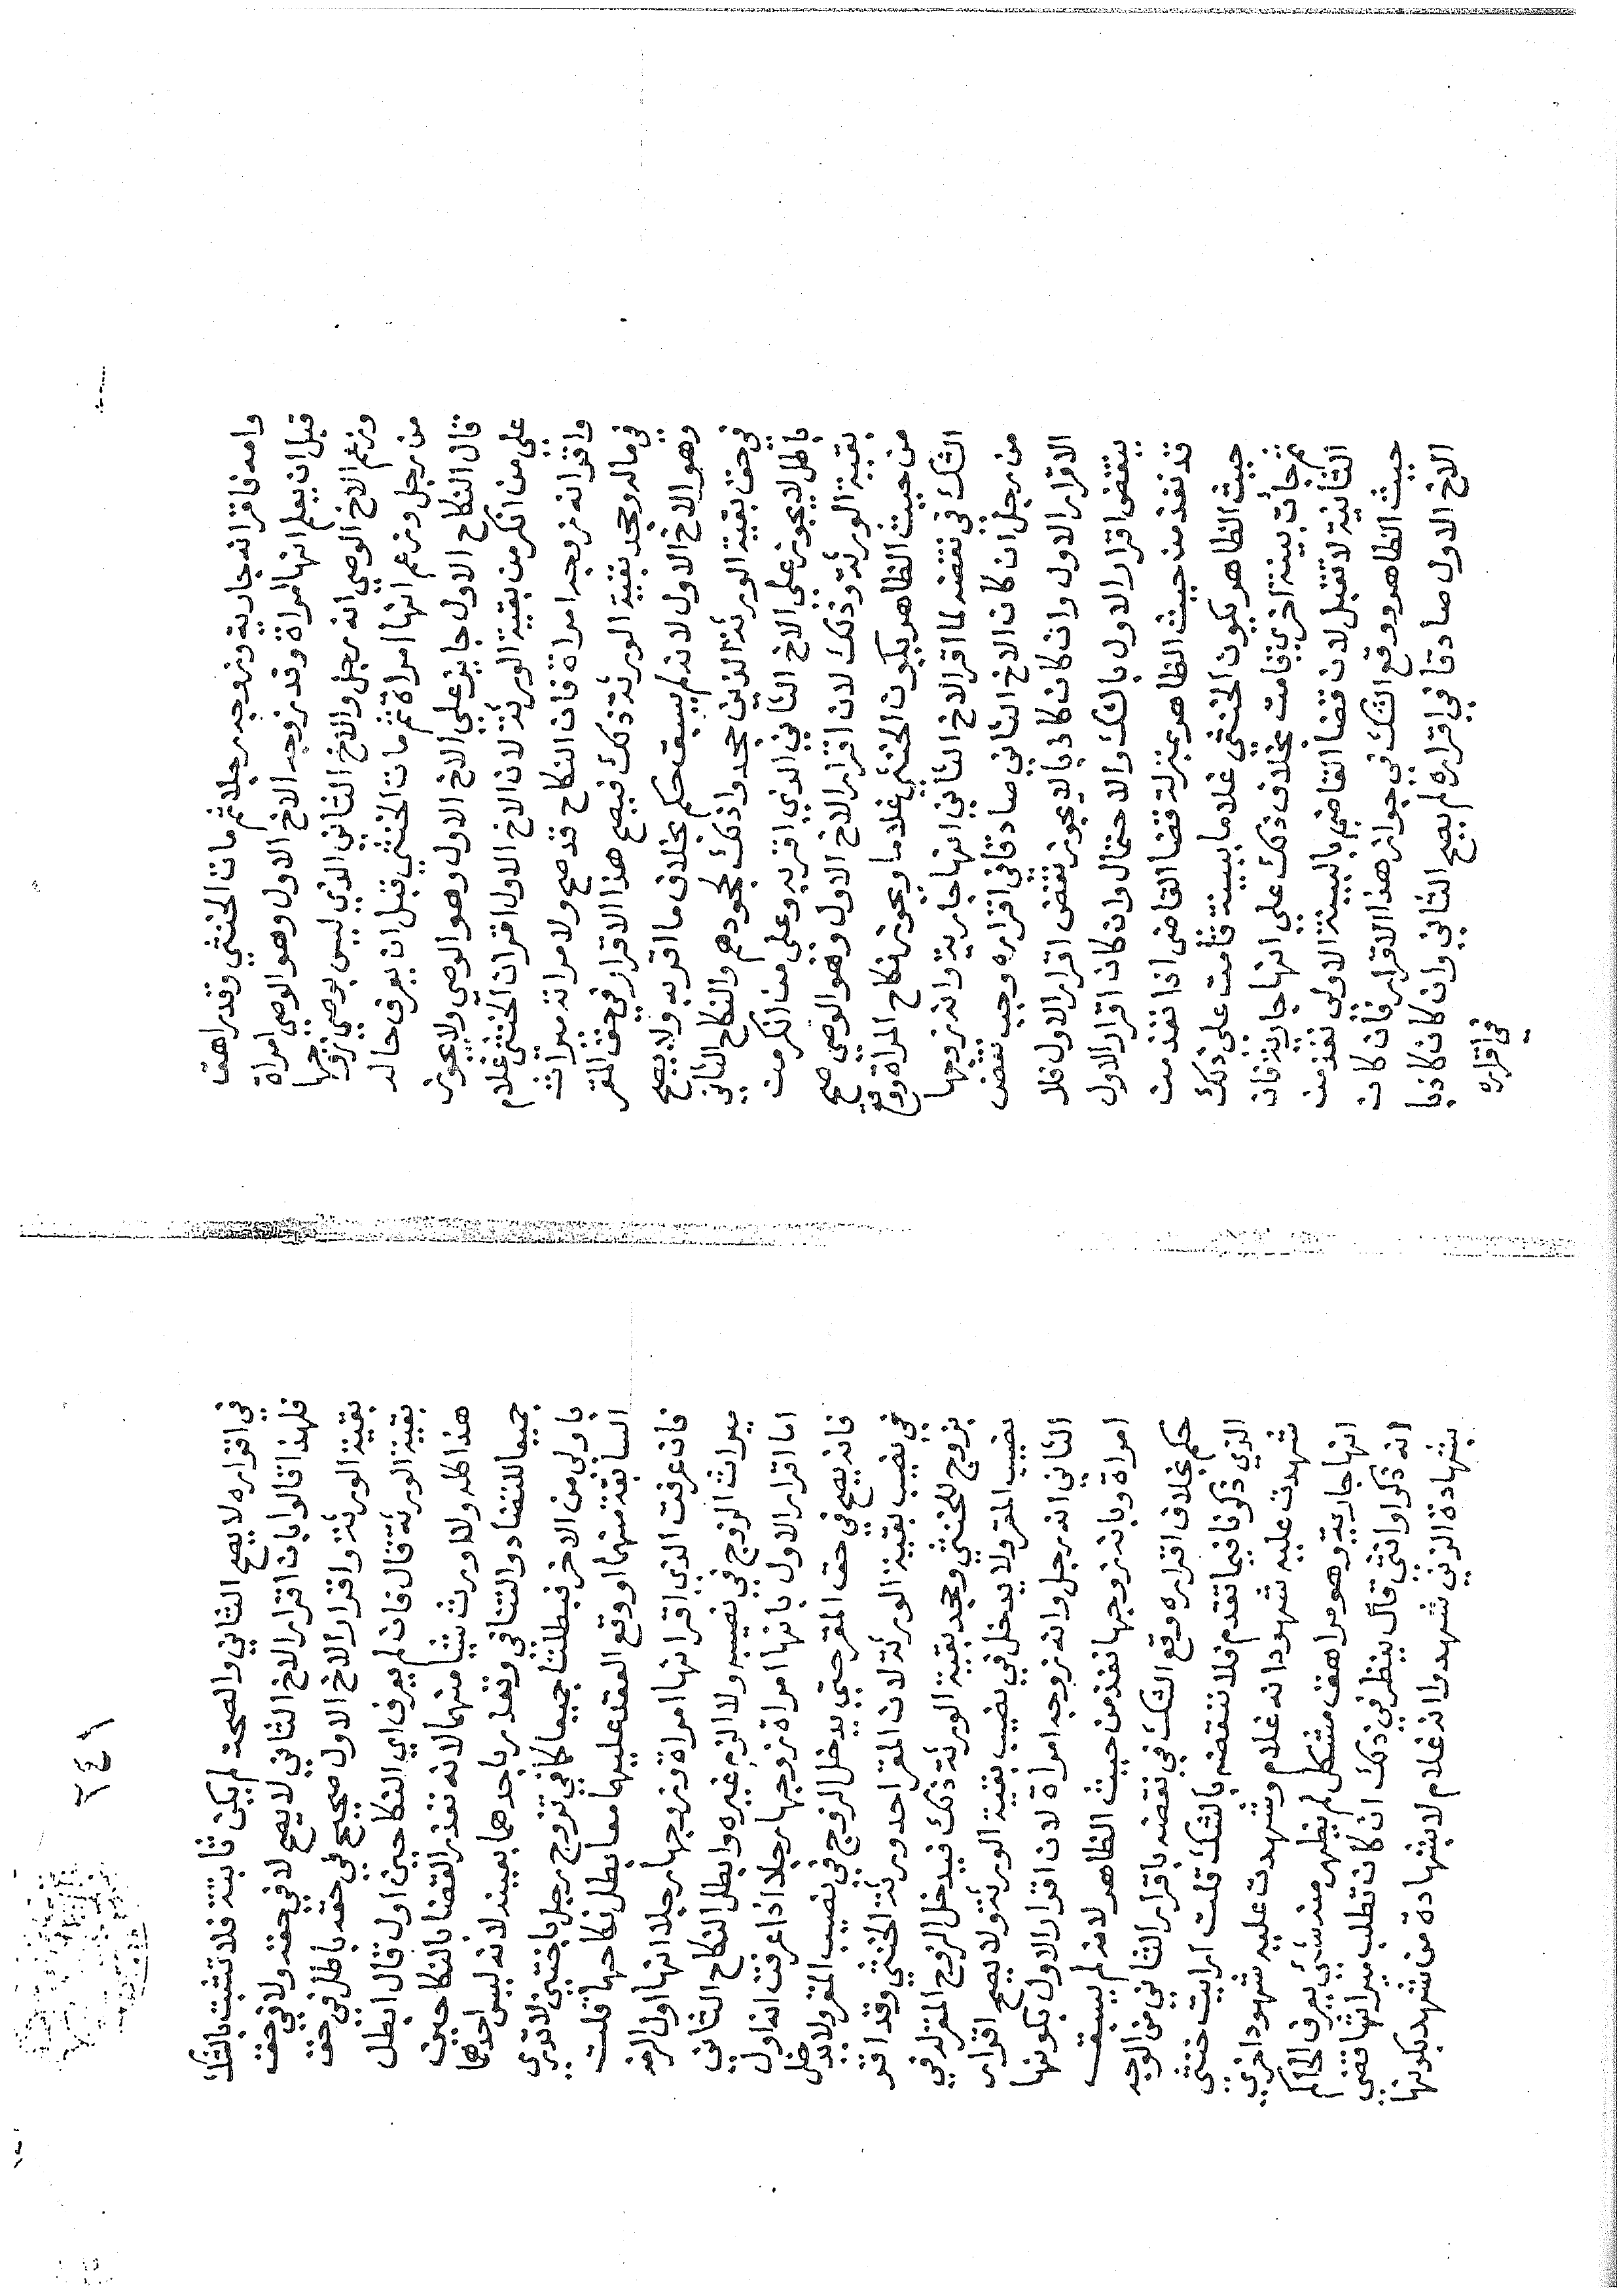 وامه فاقر انه جارية وزوجه رجلا ثم مات الخنثي وقد راهق
قبل ان يعلم انها امراة وقد زوجه الاخ الاول وهو الوصي امراة
وزعم الاخ الوصي انه رجل والاخ الثاني الذي ليس بوصي زوجها
من رجل وزعم انها امراة ثم مات الخنثي قبل ان يعرف حاله
قال النكاح الاول جايز علي الاخ الاول وهو الوصي ولا يجوز
علي من انكر من بقية الورثة لان الاخ الاول اقر ان الخنثي غلام
واقر انه زوجه امراة فان النكاح قد صح ولامراته ميراث
في ماله وجحد بقية الورثة ذلك فيصح هذا الاقرار في حق المقر
وهو الاخ الاول لانه لم يسبق حكم بخلاف ما اقر به ولا يصح
في حق بقية الورثة الذين جحدوا ذلك لجحودهم والنكاح الثاني
باطل لا يجوز علي الاخ الثاني الذي اقر به وعلي من انكر من
بقية الورثة وذلك لان اقرار الاخ الاول وهو الوصي صح
من حيث الظاهر بكون الخنثي غلاما وبجوز نكاح المراة ووقع
الشك في نقضه لما اقر الاخ الثاني انها جارية وانه زوجها
من رجل ان كان الاخ الثاني صادقا في اقراره وجب نقض
الاقرار الاول وان كان كاذبا لا يجوز نقض اقرار الاول فلا
ينتقض اقرار الاول بالشك والاحتمال وان كان اقرار الاول
قد نفذ من حيث الظاهر بمنزلة قضا القاضي اذا نفذ من
حيث الظاهر بكون الخنثي غلاما ببينة قامت علي ذلك
ثم جات بينة اخري قامت بخلاف ذلك علي انها جارية فان
الثانية لا تقبل لان قضا القاضي بالبينة الاولي نفذ من
حيث الظاهر ووقع الشك في جواز هذا الاقرار فان كان
الاخ الاول صادقا في اقراره لم يصح الثاني وان كان كاذبا
في اقراره
٢٤١
في اقراره لا يصح الثاني والصحة لم يكن ثابتة فلا تثبت بالشك
فلهذا قالوا بان اقرار الاخ الثاني لا يصح لا في حقه ولا في حق
بقية الورثة واقرار الاخ الاول صحيح في حقه باطل في حق
بقية الورثة قال فان لم يعرف اي النكاحين اول قال ابطل
هذا كله ولا اورث شيا منهما لانه تعذر القضا بالنكاحين
جميعا للتضاد والتنافي وتعذر باحدهما بعينه لانه ليس احدهما
باولي من الاخر فبطلتا جميعا كما في تزوج رجل باختين لا تدري
السابقة منهما او وقع العقد عليهما معا بطل نكاحهما قلت
فان عرفت الذي اقر انها امراة وزوجها رجلا انها اول الزمه
ميراث الزوج في نصيبه ولا الزم غيره وابطل النكاح الثاني
اما اقرار الاول بانها امراة زوجها رجلا اذا عرفت انه اول
فانه يصح في حق المقر حتي يدخل الزوج في نصيب المقر ولا يدخل
في نصيب بقية الورثة لان المقر احد ورثة الخنثي وقد اقر
بزوج للخنثي وجحد بقية الورثة ذلك فيدخل الزوج المقر له في
نصيب المقر ولا يدخل في نصيب بقية الورثة ولا يصح اقرار
الثاني انه رجل وانه زوجه امراة لان اقرار الاول بكونها
امراة وبانه زوجها نفذ من حيث الظاهر لانه لم يسبق
حكم بخلاف اقراره وقع الشك في نقضه باقرار الثاني من الوجه
الذي ذكرنا فيما تقدم فلا ننقضه بالشك قلت ارايت خنثي
شهدت عليه شهود انه غلام وشهدت عليه شهود اخري
انها جارية وهو مراهق مشكل لم يظهر منه شي يعرف الحاكم
انه ذكر او انثي قال ينظر في ذلك ان كان تطلب ميراثها قضي
بشهادة الذين شهدوا انه غلام لا بشهادة من شهد بكونها